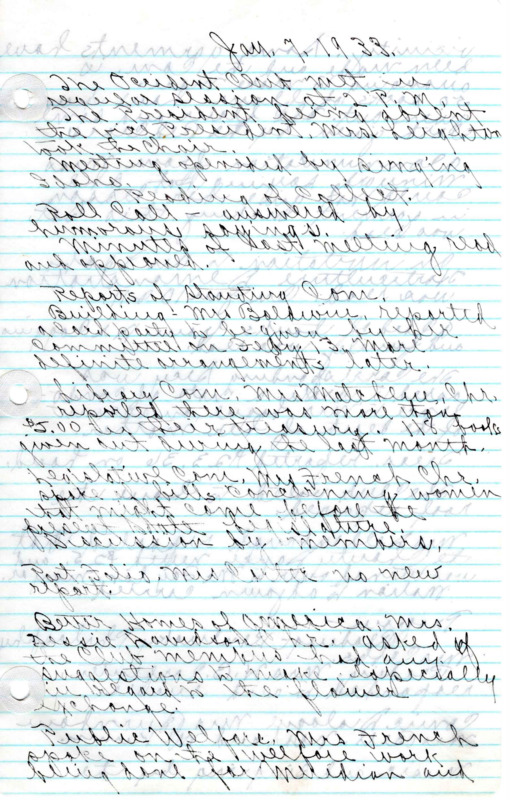 Jan. 7, 1933.
The Occident Club met in
regular session at 2 P.M.
The President being absent
the vice President Mrs. Leighton
the Chair.
Meeting opened by singing
Reading of Collect.
Roll Call - answered by
humorous sayings.
Minutes of last meeting read
and approved.
Reports of Standing Com.
Building - Mrs Baldwin, reported
a card party to be given by her
committee on 3, More
definite arrangements later.
Library Com. Mrs Chr.
reported there was more than
5.00 in their treasury. books
given out during the last month.
Legislative Com. Mrs French Chr.
spoke bills concerning women
that might come before the
present State legislature.
Discussion by members.
Port Folio, Mrs no new
report.
Better Homes of America, Mrs.
Bessie Davidson Chr. asked if
the Club members had any
suggestions to make especially
in regard to the flower
exchange.
Public Welfare, Mrs French
spoke on the welfare work
being done for Meridian and